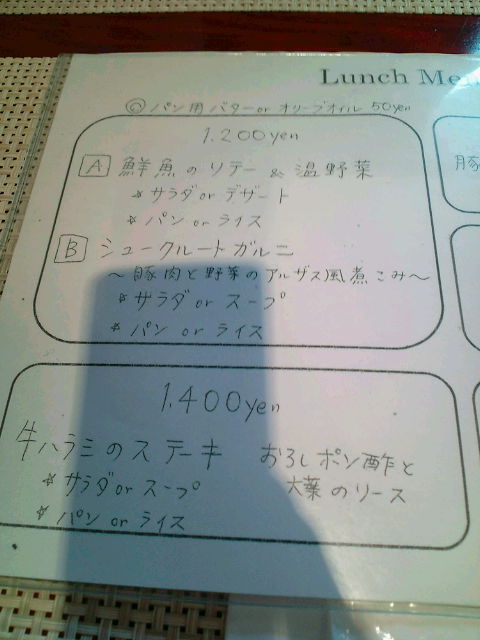 Lunch Me
◎ パン用 バター or オリーブオイル 50yen
1.200yen
A 鮮魚のソテー & 温野菜
* サラダ or デザート
* パン or ライス
B シュークルートガルニ
～豚肉と野菜のアルザス風煮こみ～
* サラダ or スープ
* パン or ライス
1.400yen
牛ハラミのステーキ おろしポン酢と
大葉のソース
* サラダ or スープ
* パン or ライス
豚